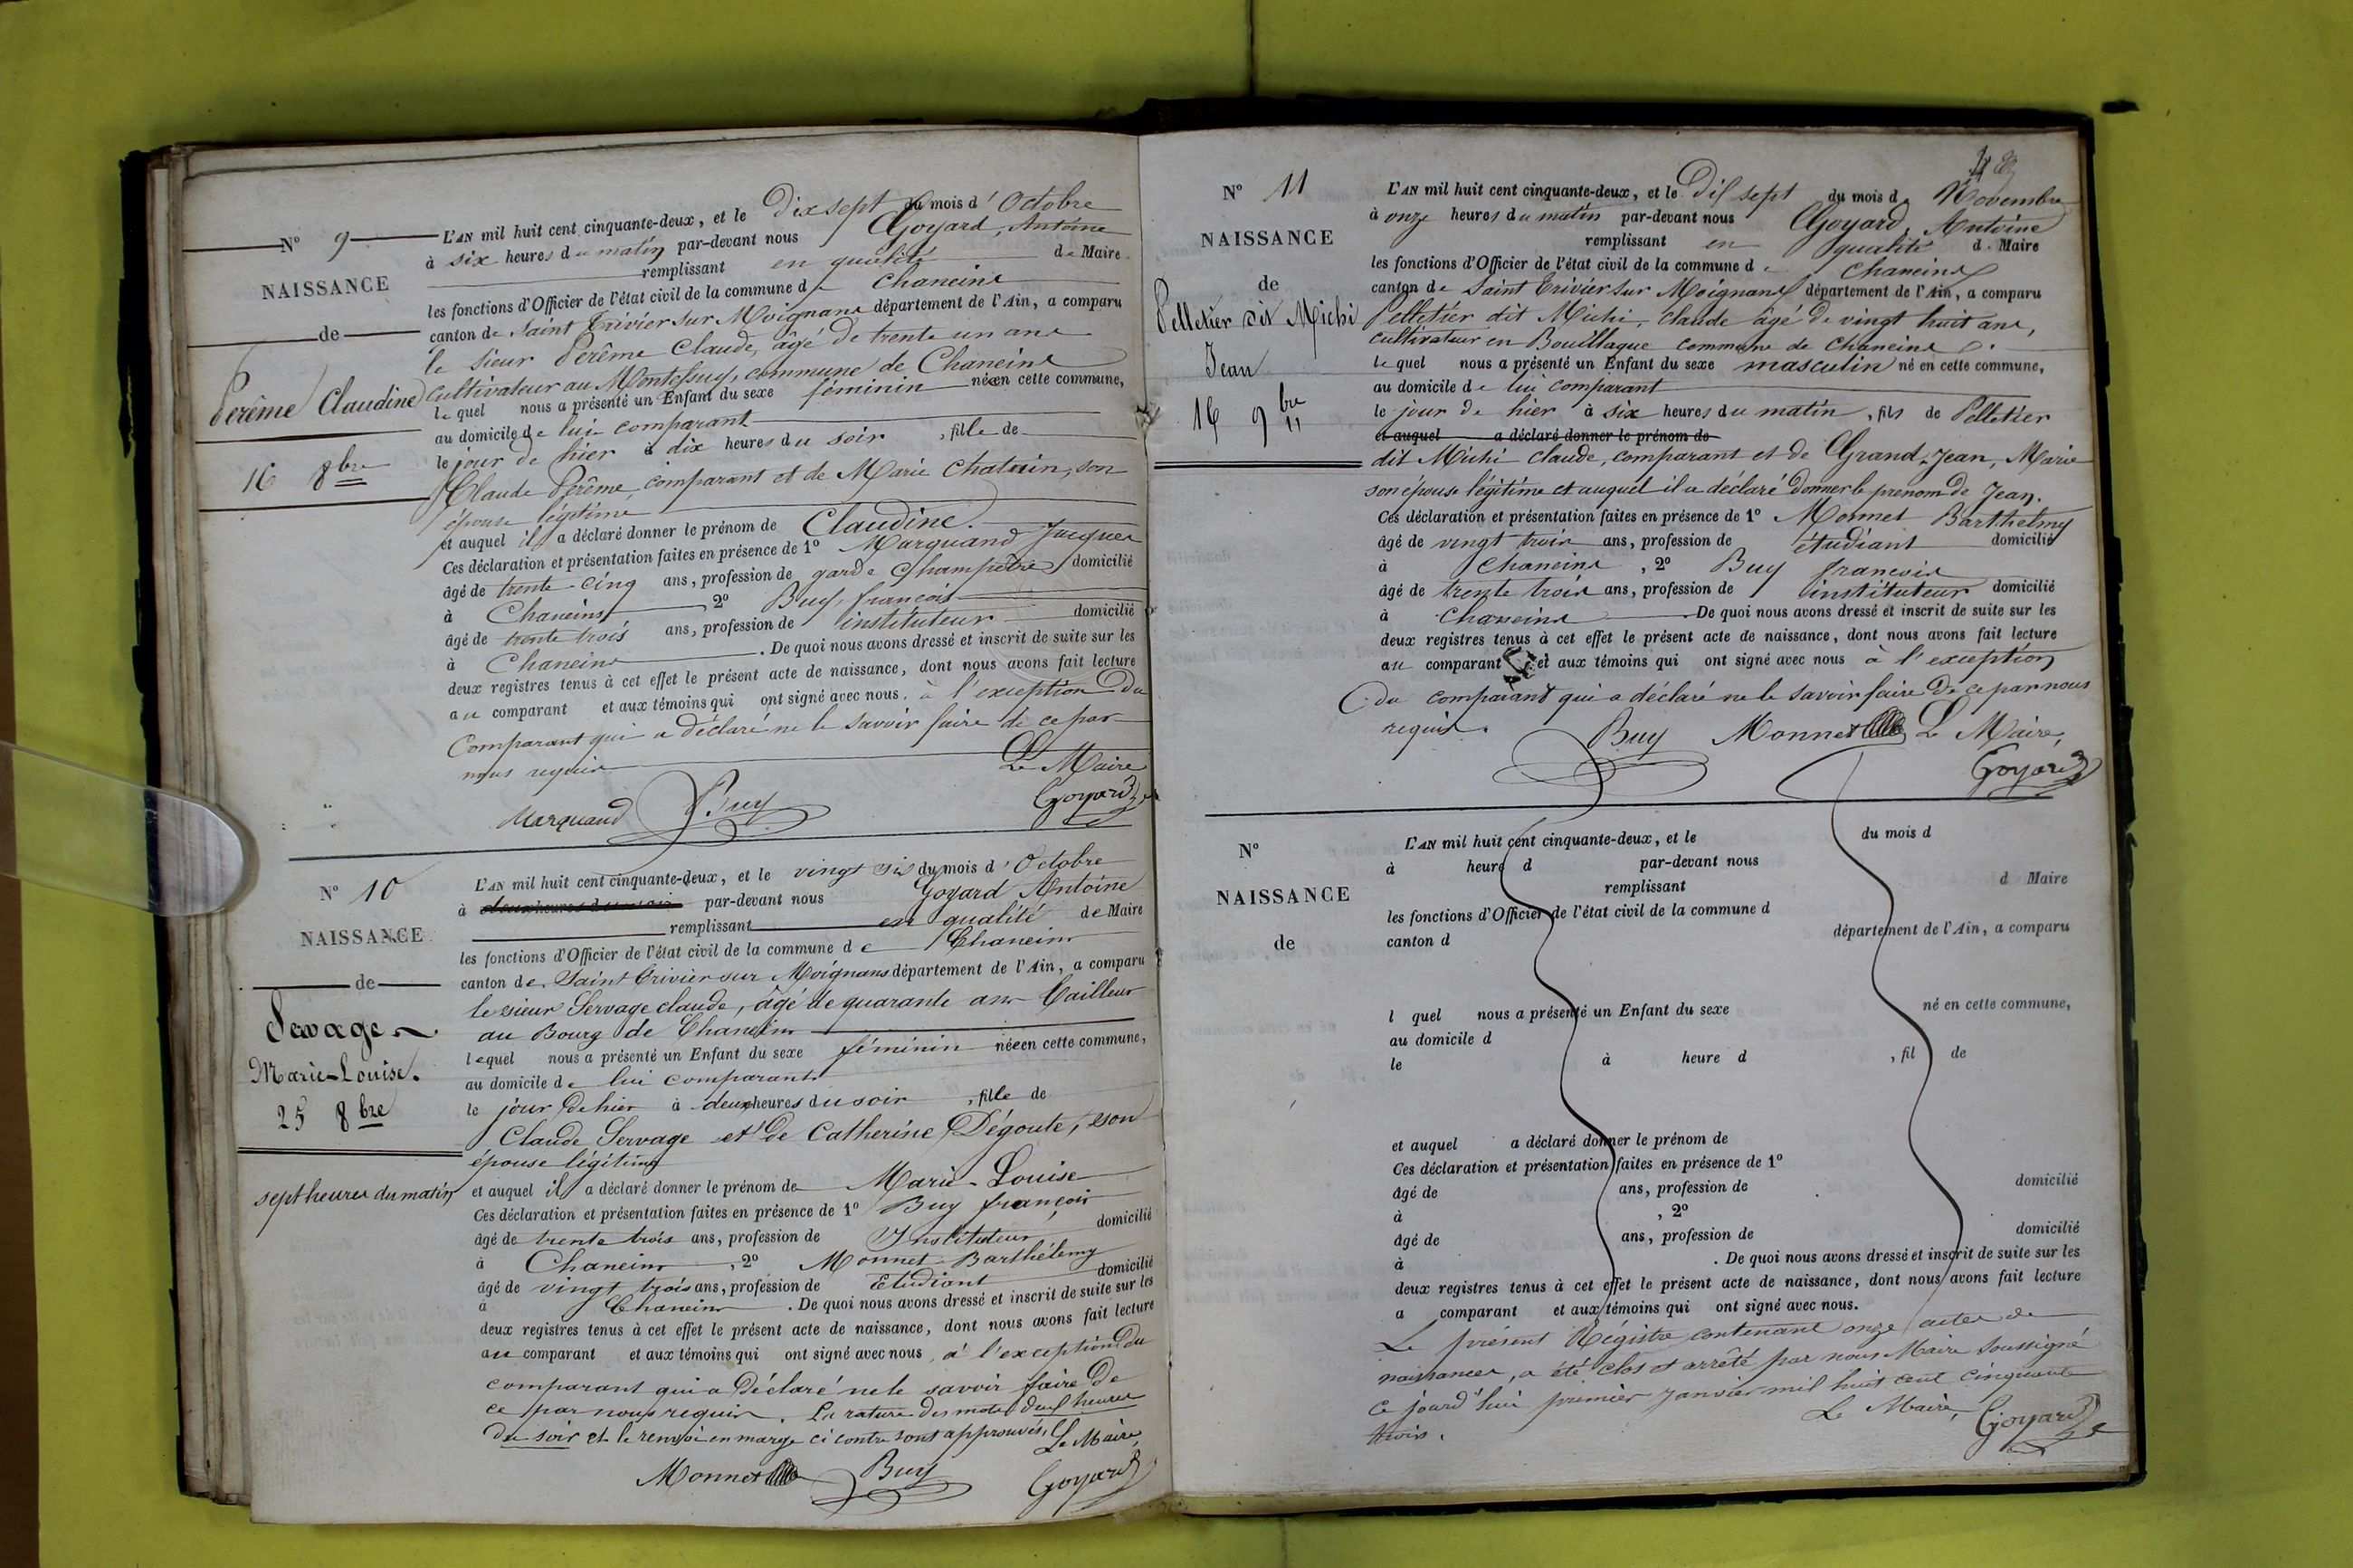 N° 9
NAISSANCE
de
Perême Claudine
16 8bre
L'AN mil huit cent cinquante-deux, et le Dix sept du mois d'Octobre
à six heures du matin par-devant nous Goyard, Antoine
remplissant en qualité de Maire
les fonctions d'Officier de l'état civil de la commune de Chaneins
canton de Saint Trivier sur Moignans département de l'Ain, a comparu
le sieur Perême Claude, âgé de trente un ans
cultivateur au Montessuy, commune de Chaneins
lequel nous a présenté un Enfant du sexe féminin née en cette commune,
au domicile de lui comparant
le jour de hier à dix heures du soir, fille de
Claude Perême, comparant et de Marie Chatain, son
épouse légitime
et auquel il a déclaré donner le prénom de Claudine.
Ces déclaration et présentation faites en présence de 1° Marquand Jacques
âgé de trente-cinq ans, profession de garde champêtre domicilié
à Chaneins 2° Buy, françois
âgé de trente trois ans, profession de instituteur domicilié
à Chaneins. De quoi nous avons dressé et inscrit de suite sur les
deux registres tenus à cet effet le présent acte de naissance, dont nous avons fait lecture
au comparant et aux témoins qui ont signé avec nous. à l'exception du
comparant qui a déclaré ne le savoir faire de ce par
nous requis
Le Maire
Marquand Buy Goyard
N° 10
NAISSANCE
de
Servage
Marie-Louise.
25 8bre
sept heures du matin
L'AN mil huit cent cinquante-deux, et le vingt six du mois d'Octobre
à deux heures du soir par-devant nous Goyard Antoine
remplissant en qualité de Maire
les fonctions d'Officier de l'état civil de la commune de Chaneins
canton de Saint Trivier sur Moignans département de l'Ain, a comparu
le sieur Servage claude, âgé de quarante ans Tailleur
au Bourg de Chaneins
lequel nous a présenté un Enfant du sexe féminin née en cette commune,
au domicile de lui comparant
le jour de hier à deux heures du soir, fille de
Claude Servage et de Catherine Dégoute, son
épouse légitime
et auquel il a déclaré donner le prénom de Marie-Louise
Ces déclaration et présentation faites en présence de 1° Buy françois
âgé de trente trois ans, profession de Instituteur domicilié
à Chaneins, 2° Monnet Barthélemy
âgé de vingt trois ans, profession de Etudiant domicilié
à Chaneins. De quoi nous avons dressé et inscrit de suite sur les
deux registres tenus à cet effet le présent acte de naissance, dont nous avons fait lecture
au comparant et aux témoins qui ont signé avec nous, à l'exception du
comparant qui a déclaré ne le savoir faire de
ce par nous requis. La rature des mots deux heures
du soir et le renvoi en marge ci contre sont approuvés. Le Maire,
Monnet Buy Goyard
N° 11
NAISSANCE
de
Pelletier dit Michi
Jean
16 9bre
L'AN mil huit cent cinquante-deux, et le Dix sept du mois de Novembre
à onze heures du matin par-devant nous Goyard, Antoine
remplissant en qualité de Maire
les fonctions d'Officier de l'état civil de la commune de Chaneins
canton de Saint Trivier sur Moignans département de l'Ain, a comparu
Pelletier dit Michi, claude âgé de vingt huit ans,
cultivateur en Bouillaque commune de chaneins.
lequel nous a présenté un Enfant du sexe masculin né en cette commune,
au domicile de lui comparant
le jour de hier à six heures du matin, fils de Pelletier
et auquel a déclaré donner le prénom de
dit Michi claude, comparant et de Grand-Jean, Marie
son épouse légitime et auquel il a déclaré donner le prenom de Jean.
Ces déclaration et présentation faites en présence de 1° Monnet Barthelmy
âgé de vingt trois ans, profession de étudiant domicilié
à Chaneins, 2° Buy françois
âgé de trente trois ans, profession de instituteur domicilié
à Chaneins. De quoi nous avons dressé et inscrit de suite sur les
deux registres tenus à cet effet le présent acte de naissance, dont nous avons fait lecture
au comparant et aux témoins qui ont signé avec nous à l'exception
du comparant qui a déclaré ne le savoir faire de ce par nous
requis.
Buy Monnet Le Maire,
Goyard
N°
NAISSANCE
de
L'AN mil huit cent cinquante-deux, et le du mois d
à heure d par-devant nous
remplissant d Maire
les fonctions d'Officier de l'état civil de la commune d
canton d département de l'Ain, a comparu
l quel nous a présenté un Enfant du sexe né en cette commune,
au domicile d
le à heure d , fil de
et auquel a déclaré donner le prénom de
Ces déclaration et présentation faites en présence de 1°
âgé de ans, profession de domicilié
à , 2°
âgé de ans, profession de domicilié
à . De quoi nous avons dressé et inscrit de suite sur les
deux registres tenus à cet effet le présent acte de naissance, dont nous avons fait lecture
a comparant et aux témoins qui ont signé avec nous.
Le présent Régistre contenant onze actes de
naissances, a été clos et arrêté par nous Maire soussigné
ce jourd'hui premier janvier mil huit cent cinquante
trois.
Le Maire, Goyard